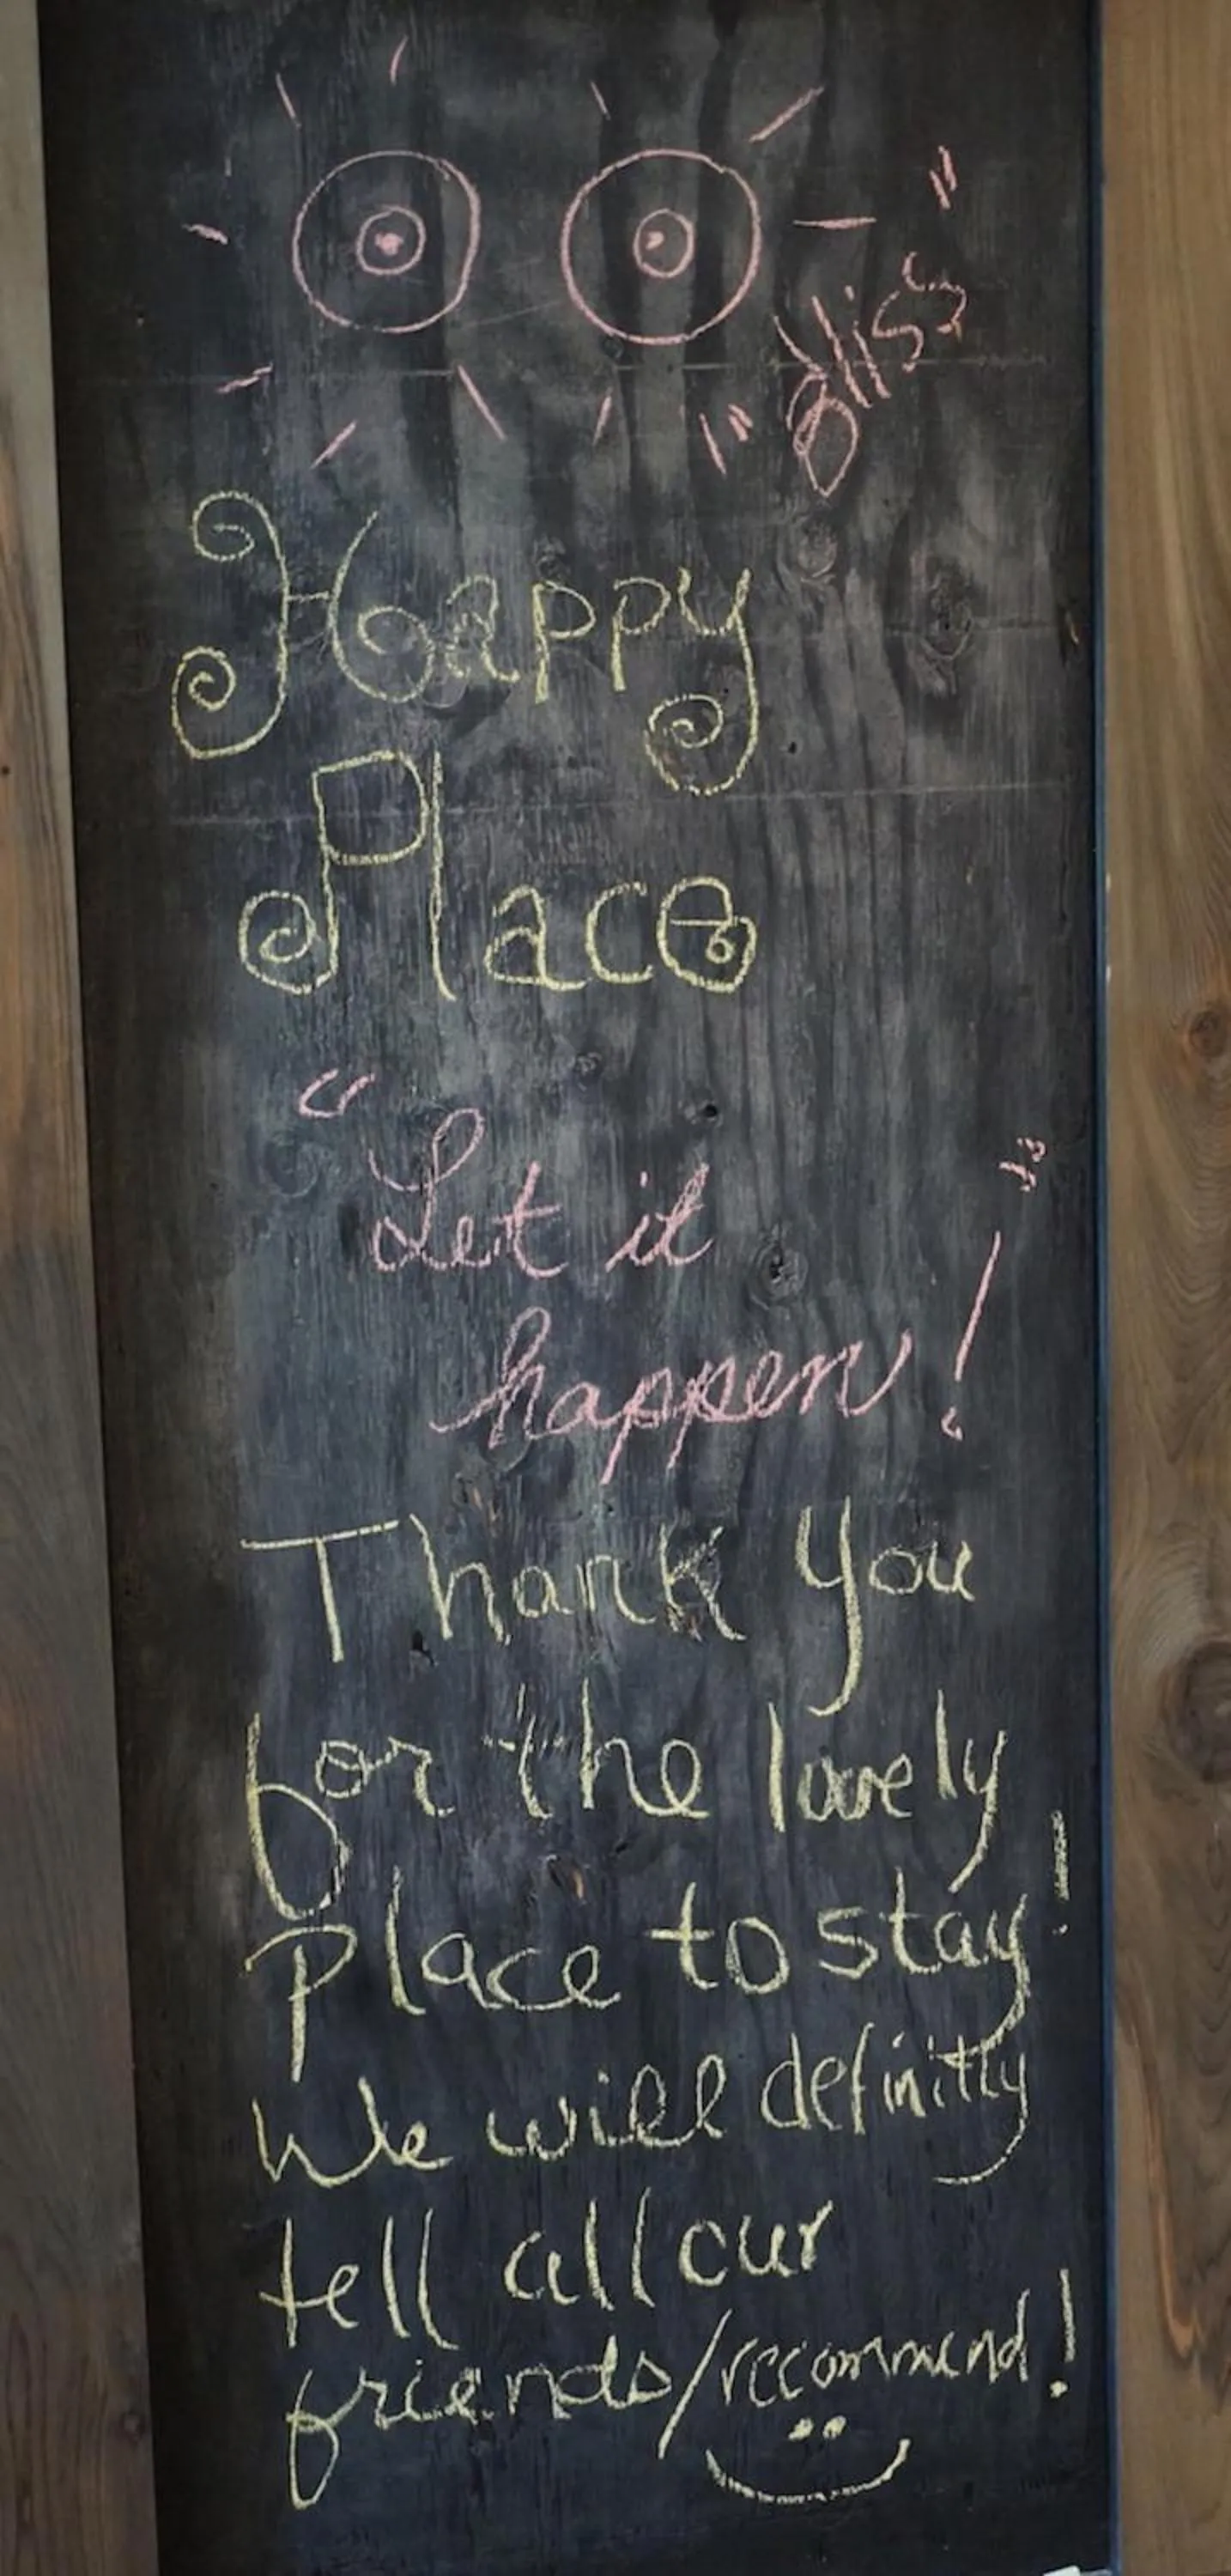 "Bliss"
Happy
Place
"Let it
happen!"
Thank you
for the lovely
Place to stay!
We will definitly
tell all our
friends/recommend!